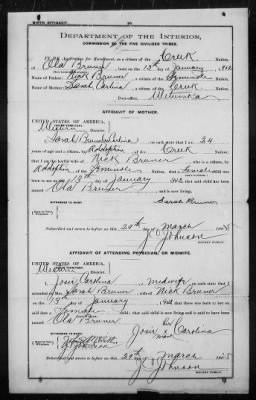 BIRTH AFFIDAVIT.
DEPARTMENT OF THE INTERIOR,
COMMISSION TO THE FIVE CIVILIZED TRIBES.
Application for Enrollment, as a citizen of the Creek Nation,
of Ola Bruner, born on the 12th day of January, 190
Name of Father: Nick Bruner, a citizen of the Seminole Nation.
Name of Mother: Sarah a citizen of the Creek Nation.
Postoffice, Wewoka
AFFIDAVIT OF MOTHER.
UNITED STATES OF AMERICA,
Western District.
I, Sarah Bruner on oath state that I am 24
years of age and a citizen, by Adoption, of the Creek Nation,
that I am the lawful wife of Nick Bruner, who is a citizen, by
Adoption of the Seminole Nation, that a female child was
born to me on day of January, 190 that said child has been
named Ola Bruner, and is now living.
Sarah Bruner
Subscribed and sworn to before me this 20th day of March, 1905
J. O. Johnson
NOTARY PUBLIC.
AFFIDAVIT OF ATTENDING PHYSICIAN, OR MIDWIFE.
UNITED STATES OF AMERICA,
Western District.
I, Josie Carolina, a midwife, on oath state that I
attended on Mrs. Sarah Bruner, wife of Nick Bruner
on the day of January, 190 that there was born to her on said date a
female child; that said child is now living and is said to have been
named Ola Bruner
Josie x Carolina
her
mark
Subscribed and sworn to before me this 20th day of March, 1905
J. O. Johnson
NOTARY PUBLIC.